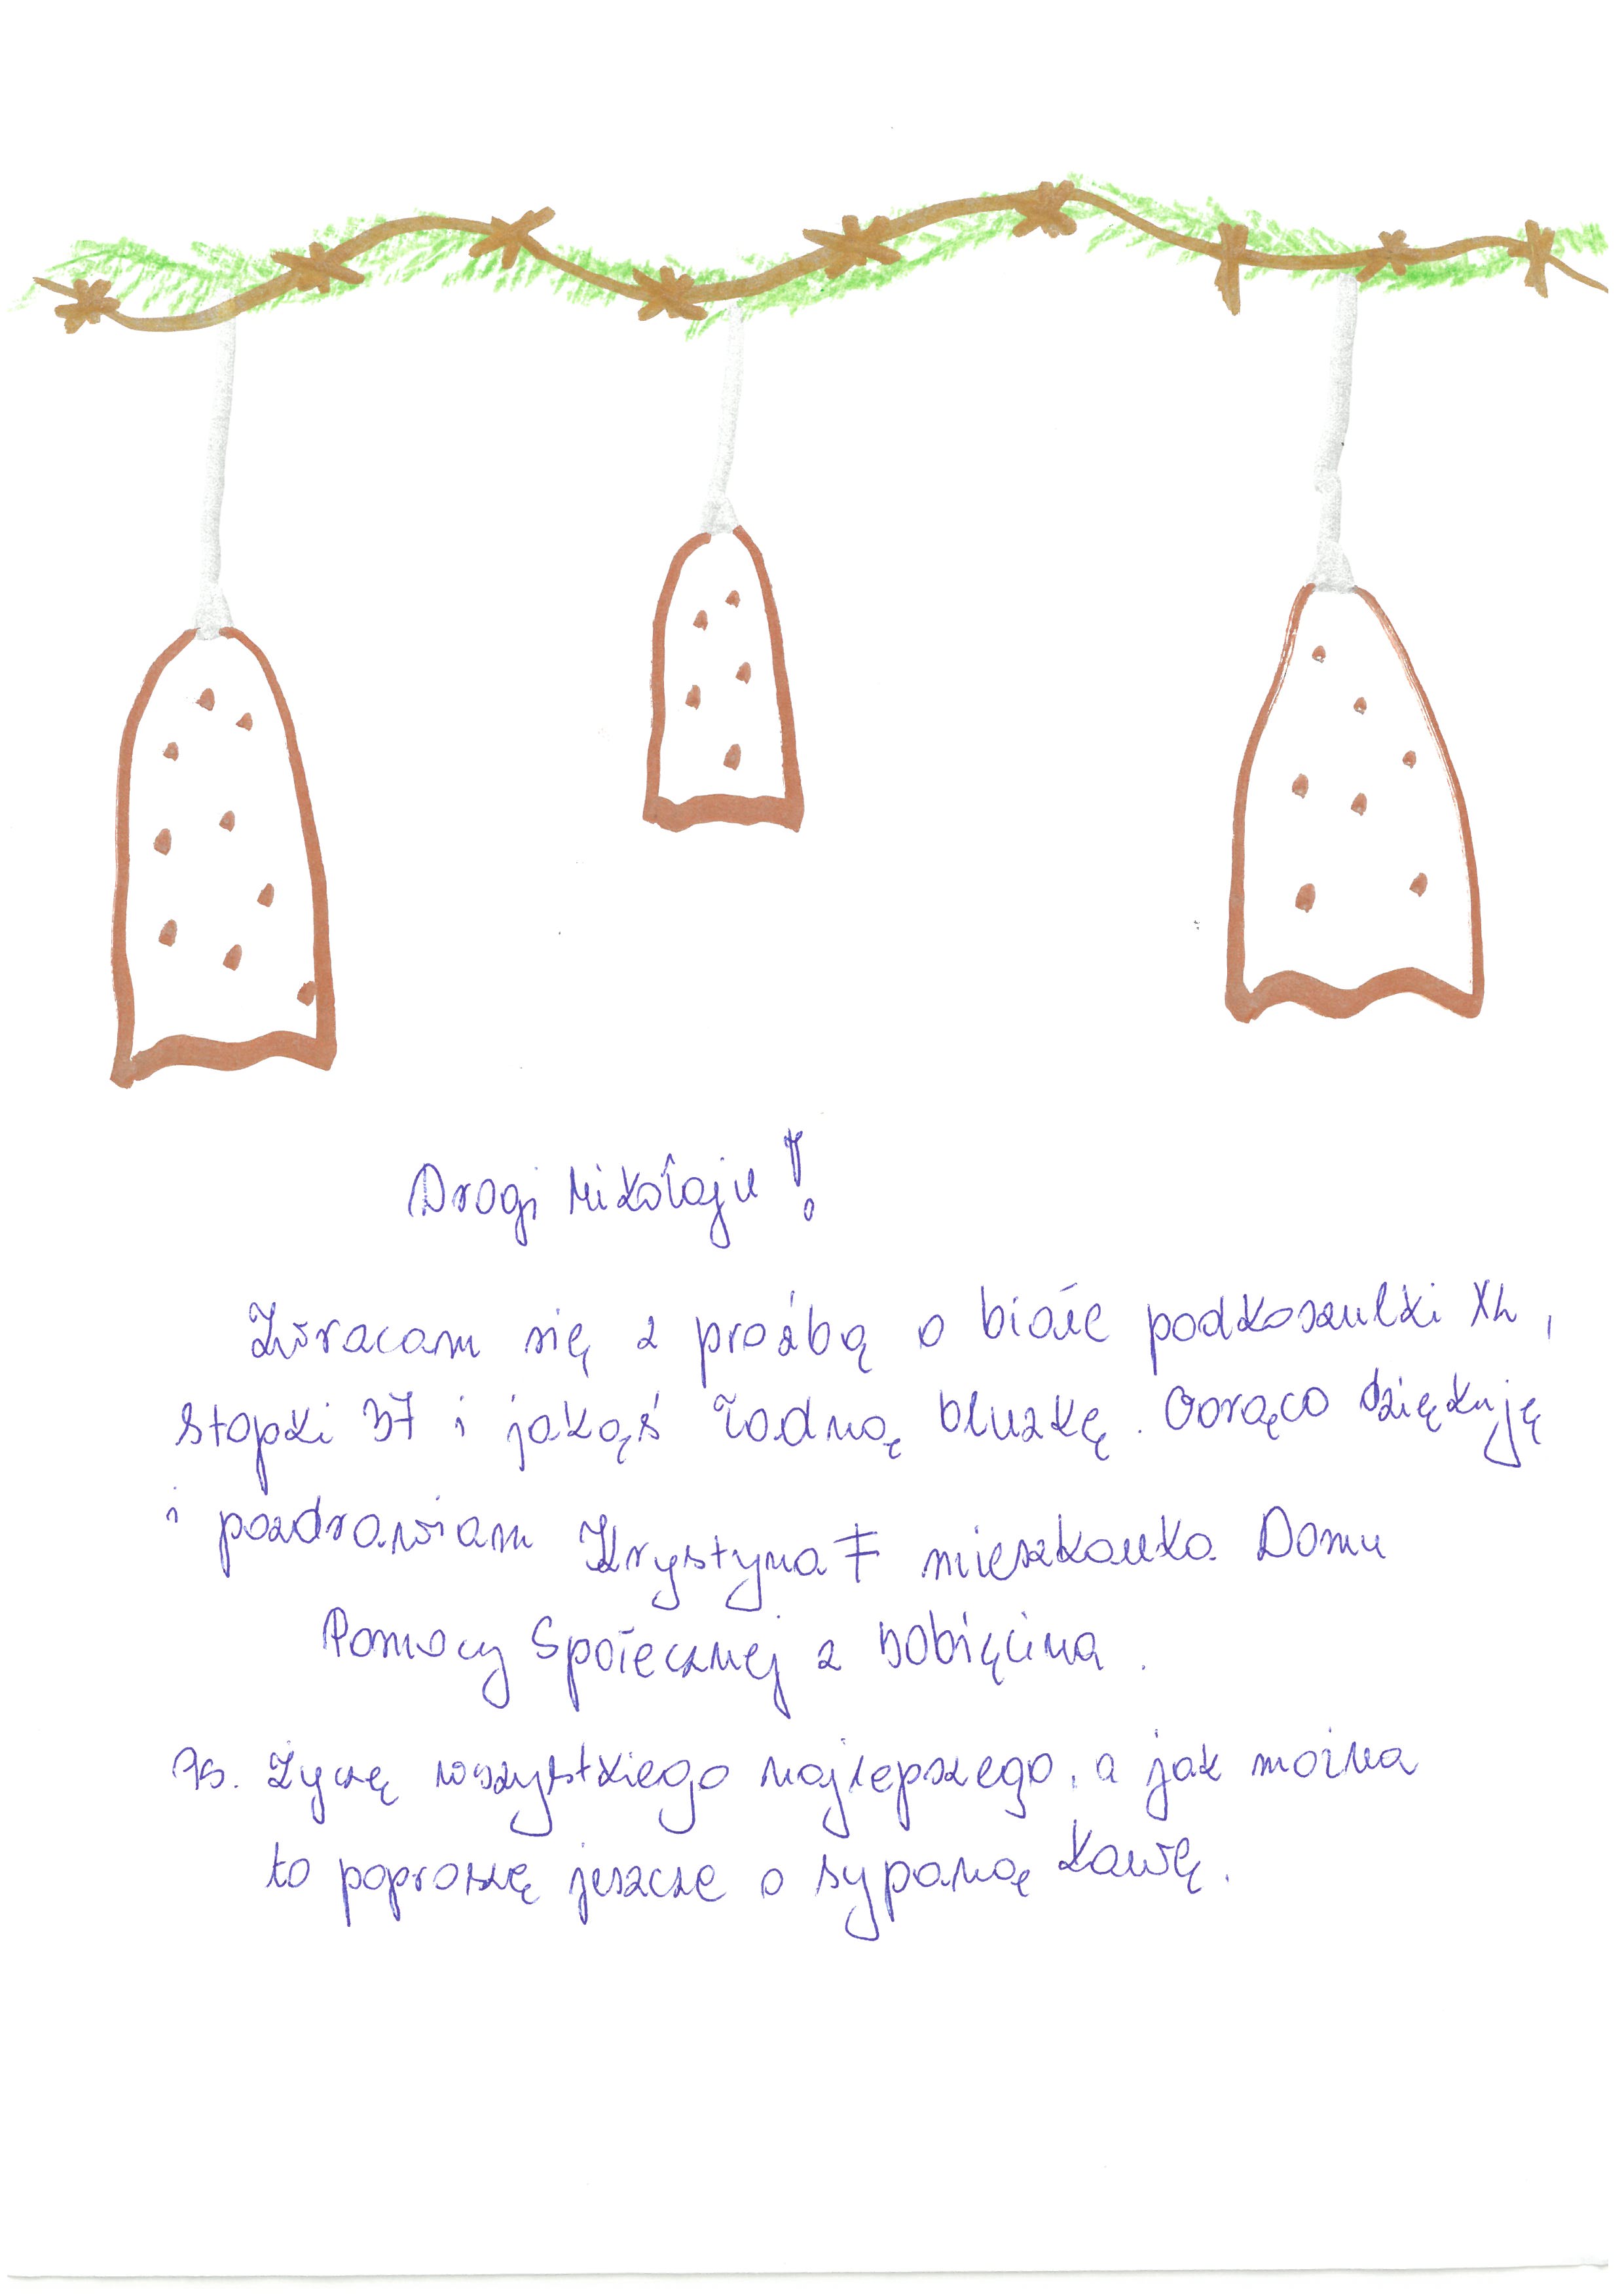 Drogi Mikołaju!
Zwracam się z prośbą o białe podkoszulki XL,
stopki 37 i jakąś ładną bluzkę. Gorąco dziękuję
i pozdrawiam Krystyna F mieszkanka Domu
Pomocy Społecznej z Bobięcina.
Ps. Życzę wszystkiego najlepszego, a jak można
to poproszę jeszcze o sypaną kawę.